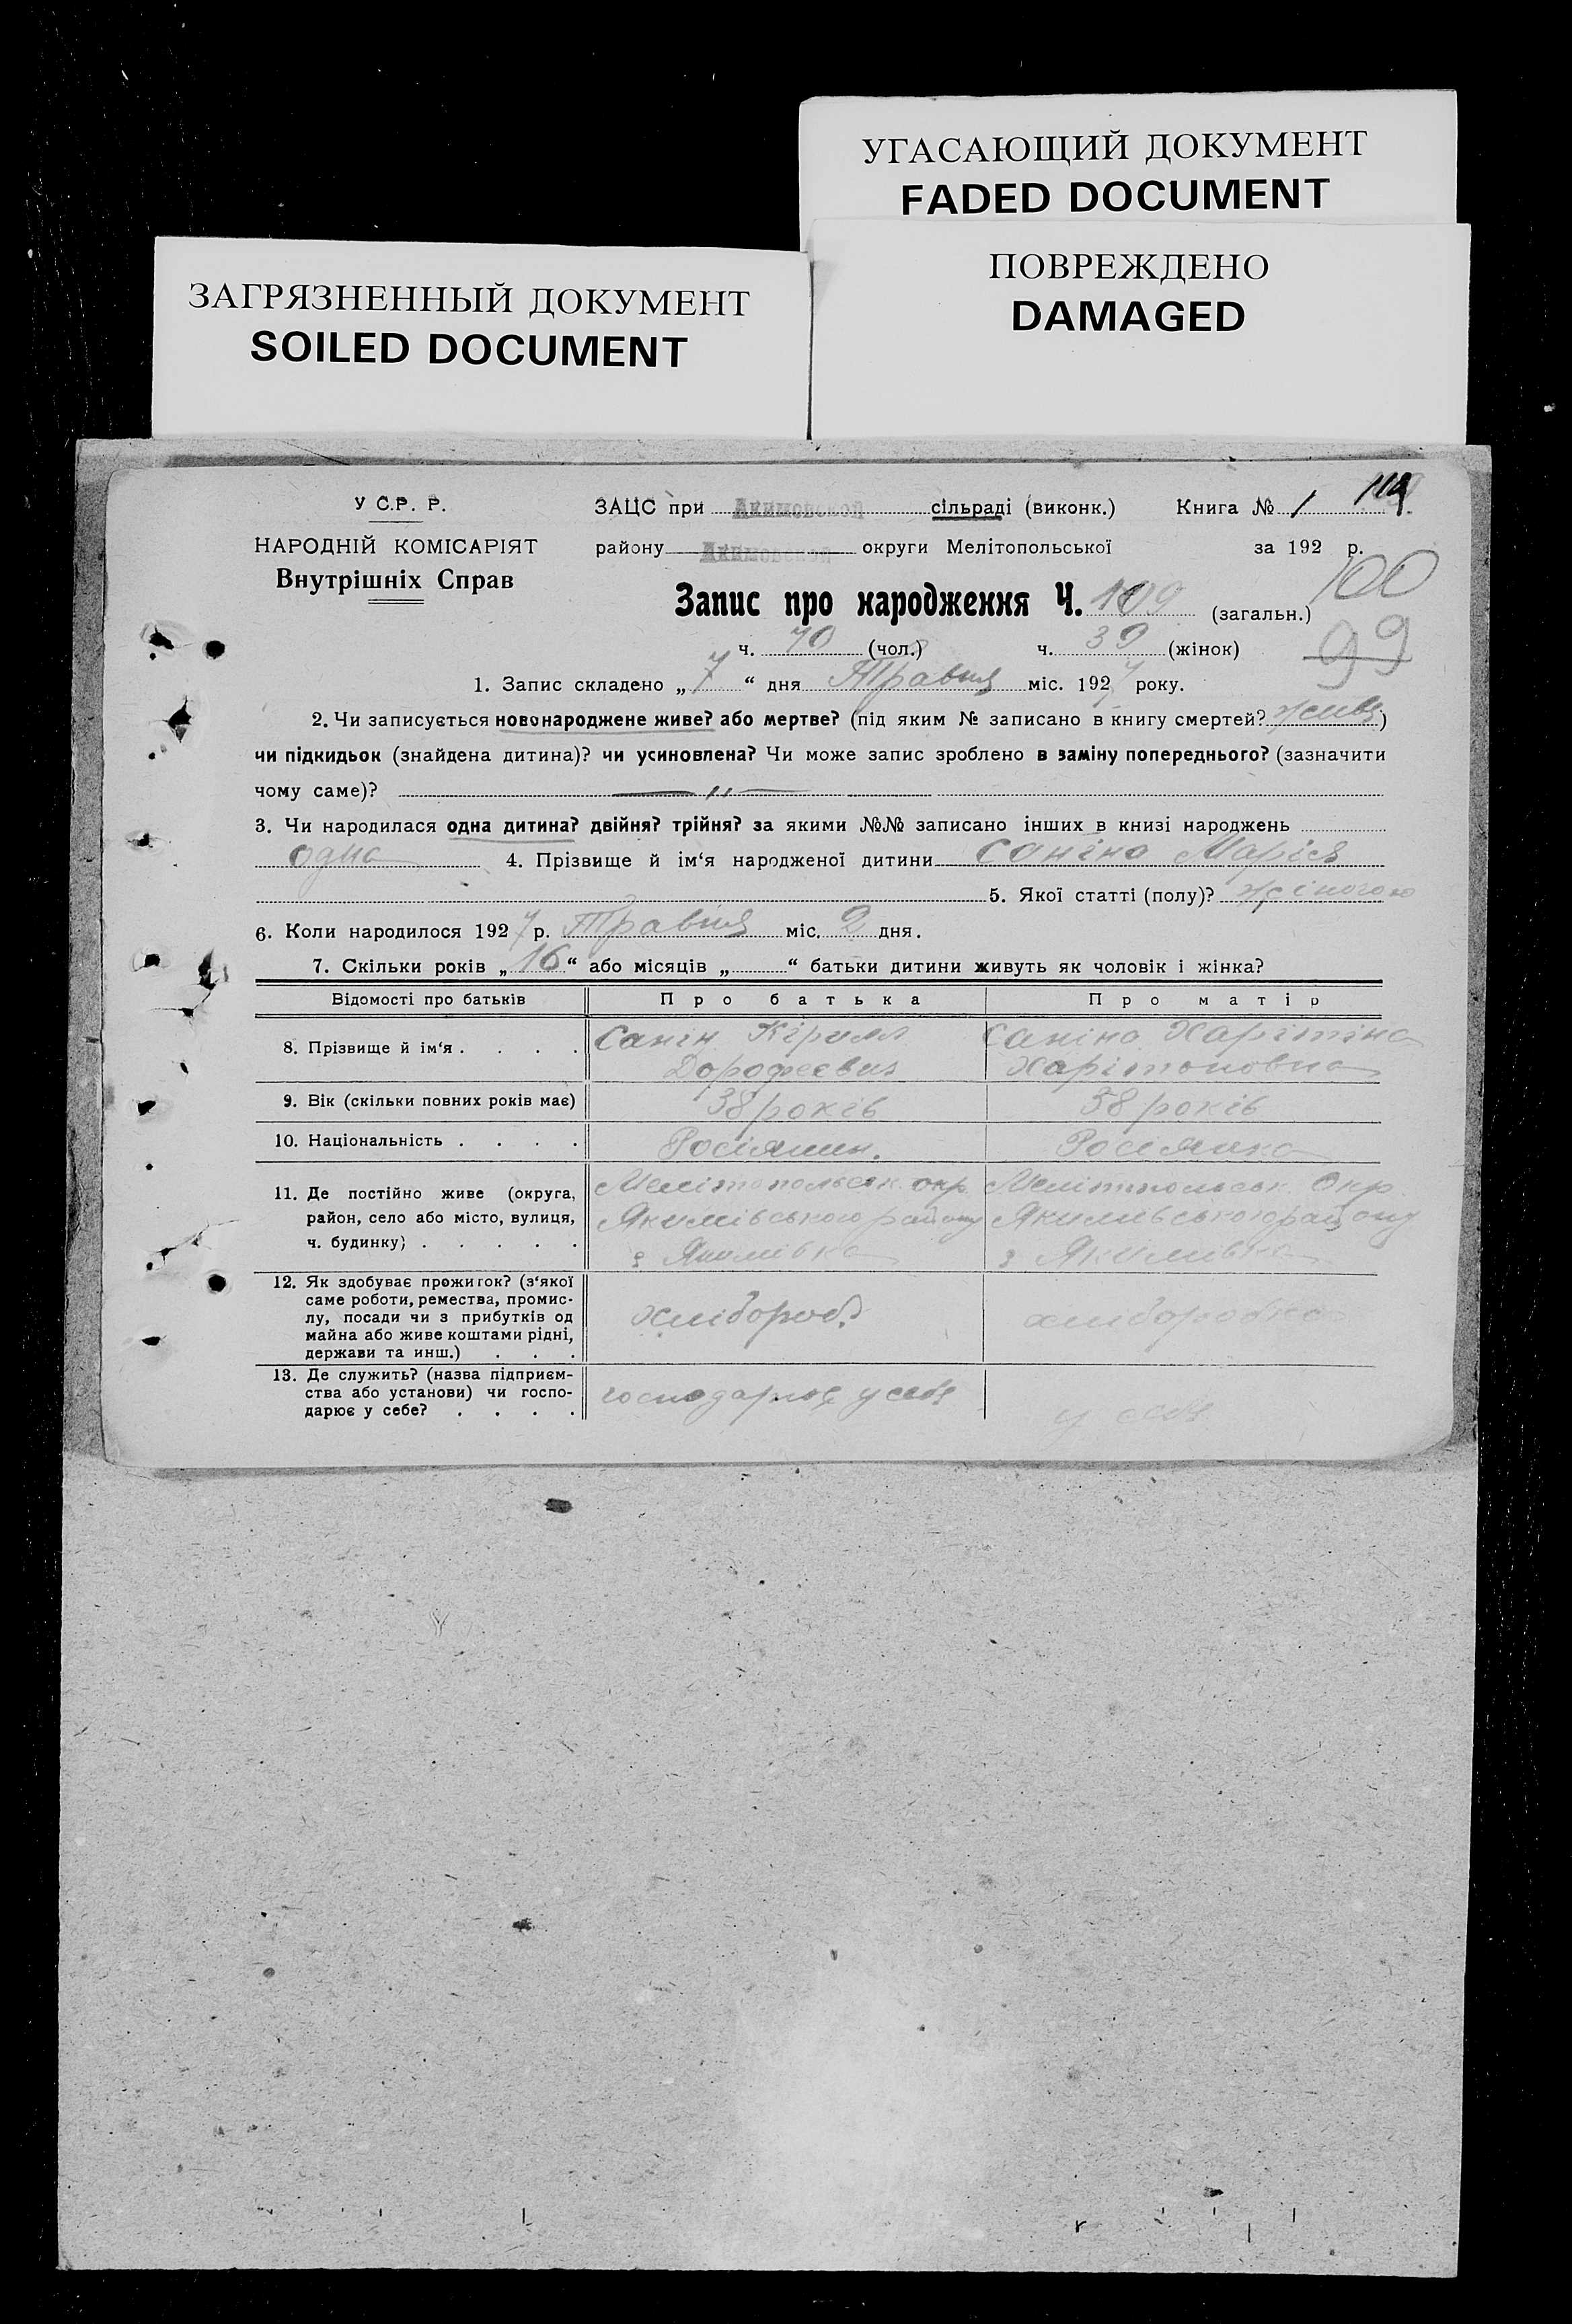 УГАСАЮЩИЙ ДОКУМЕНТ
FADED DOCUMENT
ПОВРЕЖДЕНО
DAMAGED
ЗАГРЯЗНЕННЫЙ ДОКУМЕНТ
SOILED DOCUMENT
У С.Р. Р.
НАРОДНІЙ КОМІСАРІЯТ
Внутрішніх Справ
ЗАЦС при Акимовской сільраді (виконк.) Книга № 1
району Акимовской округи Мелітопольської за 192 р.
100
Запис про народження Ч. 109 (загальн.)
ч. 70 (чол.) ч. 39 (жінок)
99
1. Запис складено „ 7 “ дня Травня міс. 1927 року.
2. Чи записується новонароджене живе? або мертве? (під яким № записано в книгу смертей? живе)
чи підкидьок (знайдена дитина)? чи усиновлена? Чи може запис зроблено в заміну попереднього? (зазначити
чому саме)? — „ —
3. Чи народилася одна дитина? двійня? трійня? за якими №№ записано інших в книзі народжень
одна 4. Прізвище й ім‘я народженої дитини Саніна Марія
5. Якої статті (полу)? жіночою
6. Коли народилося 1927 р. Травня міс. 2 дня.
7. Скільки років „ 16 “ або місяців „ “ батьки дитини живуть як чоловік і жінка?
Відомості про батьків Про батька Про матір
8. Прізвище й ім‘я . . . . Санін Кірилл Саніна Харітіна
Дорофеевич Харітоновна
9. Вік (скільки повних років має) 38 років 38 років
10. Національність . . . . Росіянин. Росіянка
11. Де постійно живе (округа, Мелітопольськ. окр. Мелітопольськ. Окр.
район, село або місто, вулиця, Якимівського району Якимівського району
ч. будинку) . . . . . с Якимівка с Якимівка
12. Як здобуває прожиток? (з‘якої
саме роботи, ремества, промис-
лу, посади чи з прибутків од хлібороб. хліборобка
майна або живе коштами рідні,
держави та инш.) . . .
13. Де служить? (назва підприєм-
ства або установи) чи госпо- господарює у себе у себе
дарює у себе? . . . .